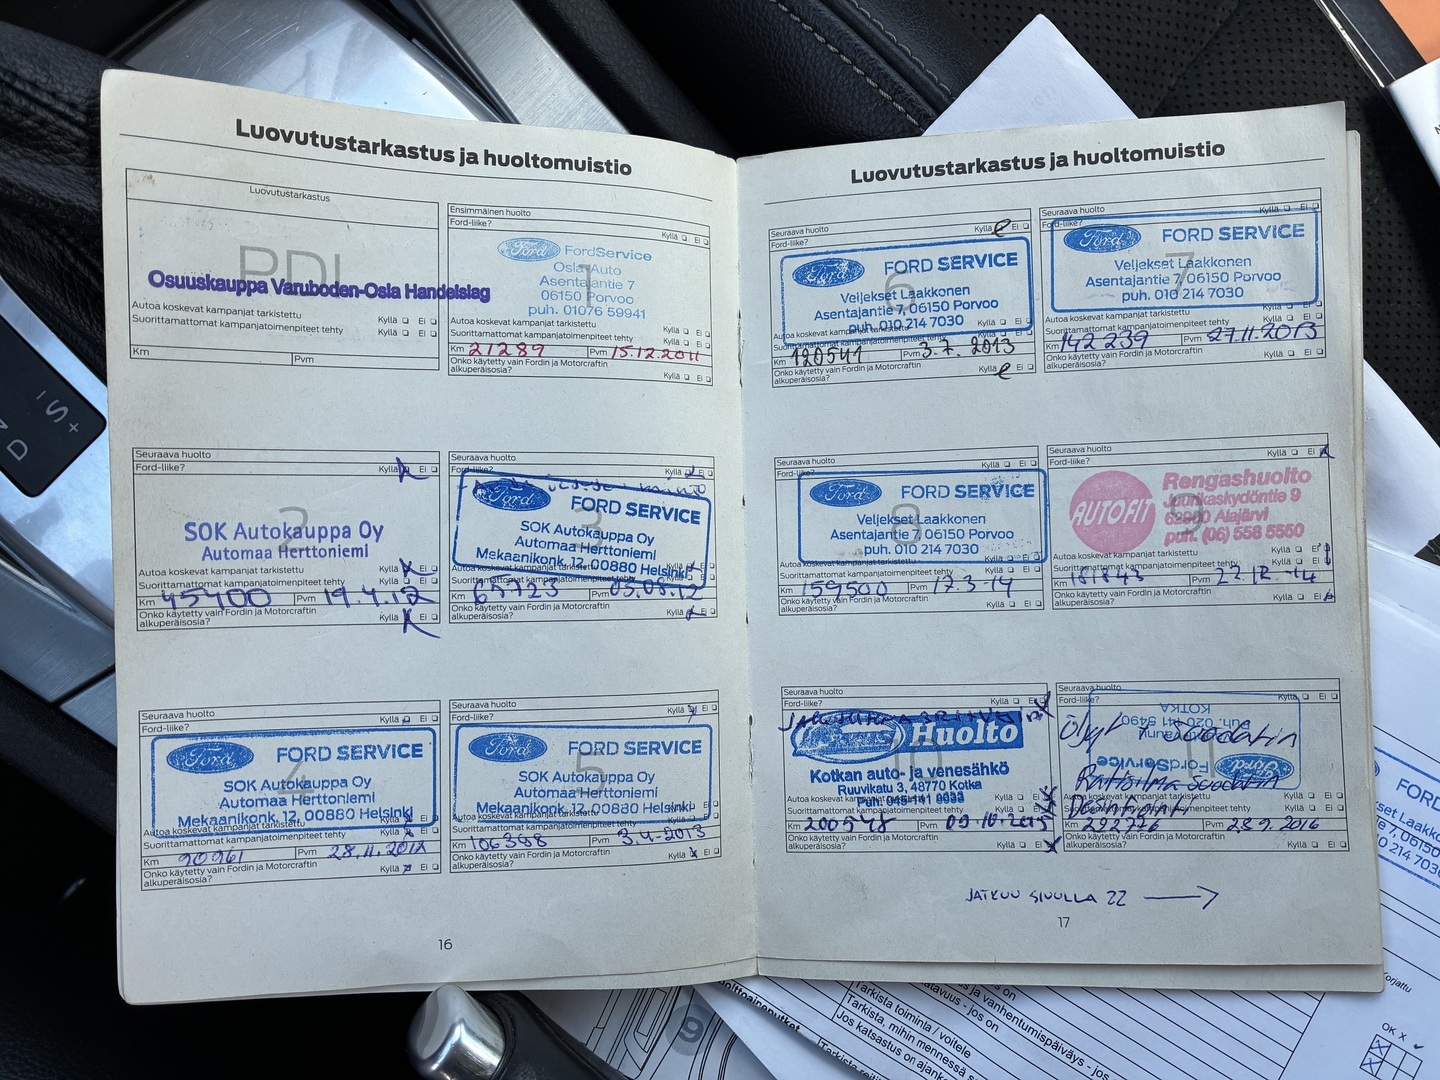 Luovutustarkastus ja huoltomuistio
Luovutustarkastus
PDI
Osuuskauppa Varuboden-Osla Handelslag
Autoa koskevat kampanjat tarkistettu Kyllä Ei
Suorittamattomat kampanjatoimenpiteet tehty Kyllä Ei
Km Pvm
Ensimmäinen huolto
Ford-liike? Kyllä Ei
1
Ford FordService
Osla Auto
Asentajantie 7
06150 Porvoo
puh. 01076 59941
Autoa koskevat kampanjat tarkistettu Kyllä Ei
Suorittamattomat kampanjatoimenpiteet tehty Kyllä Ei
Km 21289 Pvm 15.12.2011
Onko käytetty vain Fordin ja Motorcraftin Kyllä Ei
alkuperäisosia?
Seuraava huolto
Ford-liike? Kyllä Ei
2
SOK Autokauppa Oy
Automaa Herttoniemi
Autoa koskevat kampanjat tarkistettu Kyllä Ei
Suorittamattomat kampanjatoimenpiteet tehty Kyllä Ei
Km 45400 Pvm 19.4.12
Onko käytetty vain Fordin ja Motorcraftin Kyllä Ei
alkuperäisosia?
Seuraava huolto
Ford-liike? Kyllä Ei
3
Ford FORD SERVICE
SOK Autokauppa Oy
Automaa Herttoniemi
Mekaanikonk. 12, 00880 Helsinki
Autoa koskevat kampanjat tarkistettu Kyllä Ei
Suorittamattomat kampanjatoimenpiteet tehty Kyllä Ei
Km Pvm 03.08.12
Onko käytetty vain Fordin ja Motorcraftin Kyllä Ei
alkuperäisosia?
Seuraava huolto
Ford-liike? Kyllä Ei
4
Ford FORD SERVICE
SOK Autokauppa Oy
Automaa Herttoniemi
Mekaanikonk. 12, 00880 Helsinki
Autoa koskevat kampanjat tarkistettu Kyllä Ei
Suorittamattomat kampanjatoimenpiteet tehty Kyllä Ei
Km 90961 Pvm 28.11.2012
Onko käytetty vain Fordin ja Motorcraftin Kyllä Ei
alkuperäisosia?
Seuraava huolto
Ford-liike? Kyllä Ei
5
Ford FORD SERVICE
SOK Autokauppa Oy
Automaa Herttoniemi
Mekaanikonk. 12, 00880 Helsinki
Autoa koskevat kampanjat tarkistettu Kyllä Ei
Suorittamattomat kampanjatoimenpiteet tehty Kyllä Ei
Km 106388 Pvm 3.4.2013
Onko käytetty vain Fordin ja Motorcraftin Kyllä Ei
alkuperäisosia?
16
Luovutustarkastus ja huoltomuistio
Seuraava huolto Kyllä Ei
Ford-liike?
6
Ford FORD SERVICE
Veljekset Laakkonen
Asentajantie 7, 06150 Porvoo
puh. 010 214 7030
Autoa koskevat kampanjat tarkistettu Kyllä Ei
Suorittamattomat kampanjatoimenpiteet tehty Kyllä Ei
Km 120541 Pvm 3.7.2013
Onko käytetty vain Fordin ja Motorcraftin Kyllä Ei
alkuperäisosia?
Seuraava huolto Kyllä Ei
Ford-liike?
7
Ford FORD SERVICE
Veljekset Laakkonen
Asentajantie 7, 06150 Porvoo
puh. 010 214 7030
Autoa koskevat kampanjat tarkistettu Kyllä Ei
Suorittamattomat kampanjatoimenpiteet tehty Kyllä Ei
Km 142239 Pvm 27.11.2013
Onko käytetty vain Fordin ja Motorcraftin Kyllä Ei
alkuperäisosia?
Seuraava huolto
Ford-liike? Kyllä Ei
8
Ford FORD SERVICE
Veljekset Laakkonen
Asentajantie 7, 06150 Porvoo
puh. 010 214 7030
Autoa koskevat kampanjat tarkistettu Kyllä Ei
Suorittamattomat kampanjatoimenpiteet tehty Kyllä Ei
Km 159500 Pvm 17.3-14
Onko käytetty vain Fordin ja Motorcraftin Kyllä Ei
alkuperäisosia?
Seuraava huolto
Ford-liike? Kyllä Ei
9
AUTOFIT Rengashuolto
Juurikaskydöntie 9
62900 Alajärvi
puh. (06) 558 5550
Autoa koskevat kampanjat tarkistettu Kyllä Ei
Suorittamattomat kampanjatoimenpiteet tehty Kyllä Ei
Km 181843 Pvm 22.12-14
Onko käytetty vain Fordin ja Motorcraftin Kyllä Ei
alkuperäisosia?
Seuraava huolto
Ford-liike? Kyllä Ei
10
Huolto
Kotkan auto- ja venesähkö
Ruuvikatu 3, 48770 Kotka
Autoa koskevat kampanjat tarkistettu Kyllä Ei
Suorittamattomat kampanjatoimenpiteet tehty Kyllä Ei
Km 200548 Pvm 09.10.2015
Onko käytetty vain Fordin ja Motorcraftin Kyllä Ei
alkuperäisosia?
Seuraava huolto
Ford-liike? Kyllä Ei
11
KOTKA
Puh. 020 741 5490
Öljyt / Suodatin
Ford FordService
Raitisilma Suodatin
Autoa koskevat kampanjat tarkistettu Kyllä Ei
Suorittamattomat kampanjatoimenpiteet tehty Kyllä Ei
Km Pvm 28.9.2016
Onko käytetty vain Fordin ja Motorcraftin Kyllä Ei
alkuperäisosia?
JATKUU SIVULLA 22
17
D
S
+
-
FORD
9
Tarkista toiminta / voitele
OK X